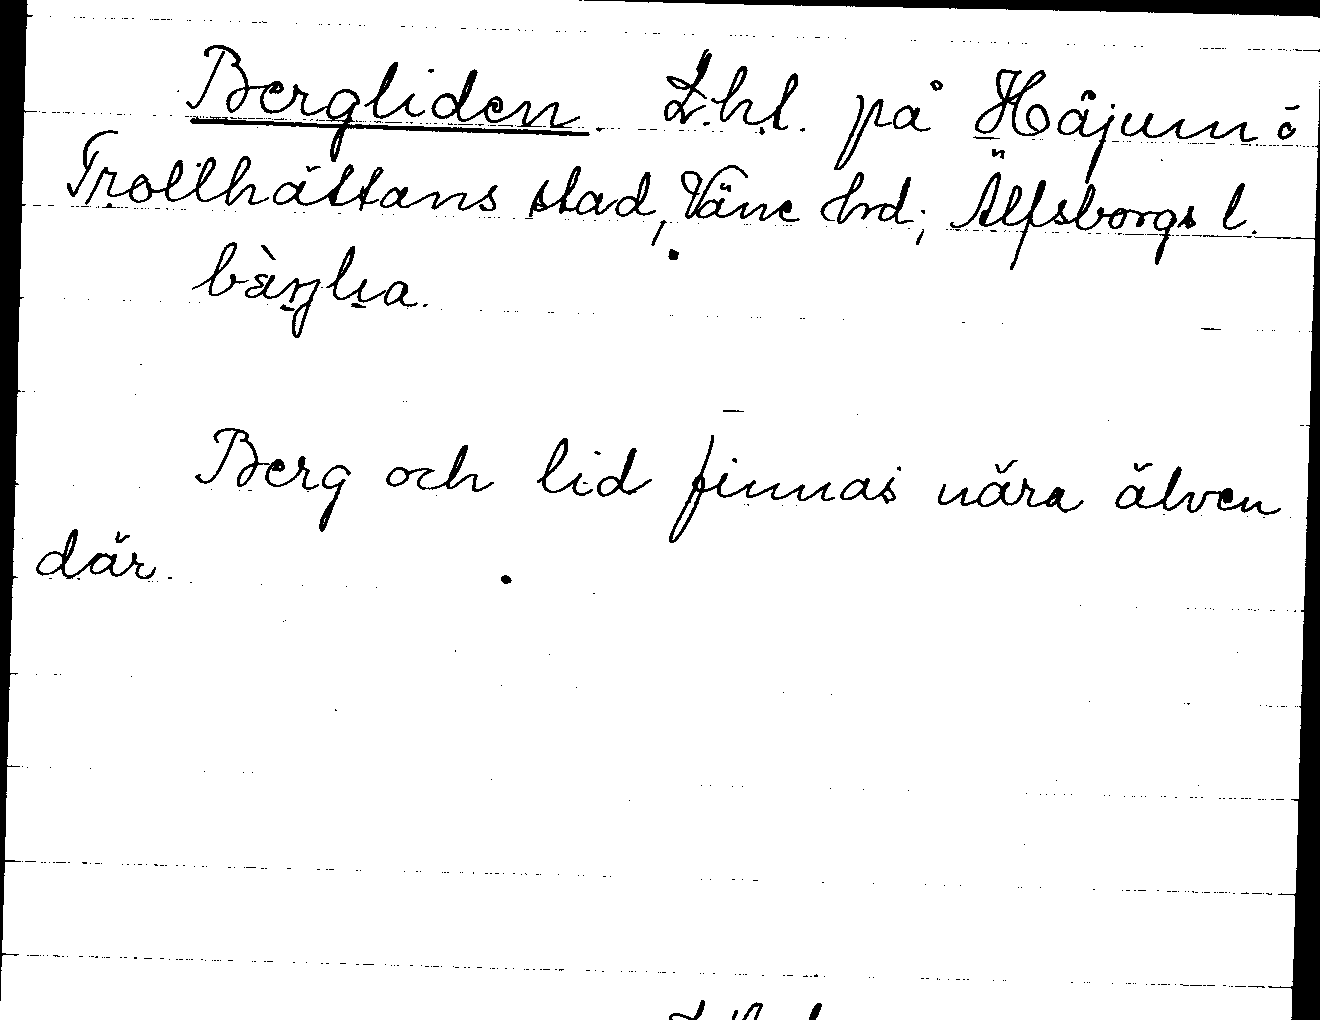 Bergliden. L.h.l. på Håjum i
Trollhättans stad, Väne hrd; Älfsborgs l.
Berg och lid finnas nära älven
där.